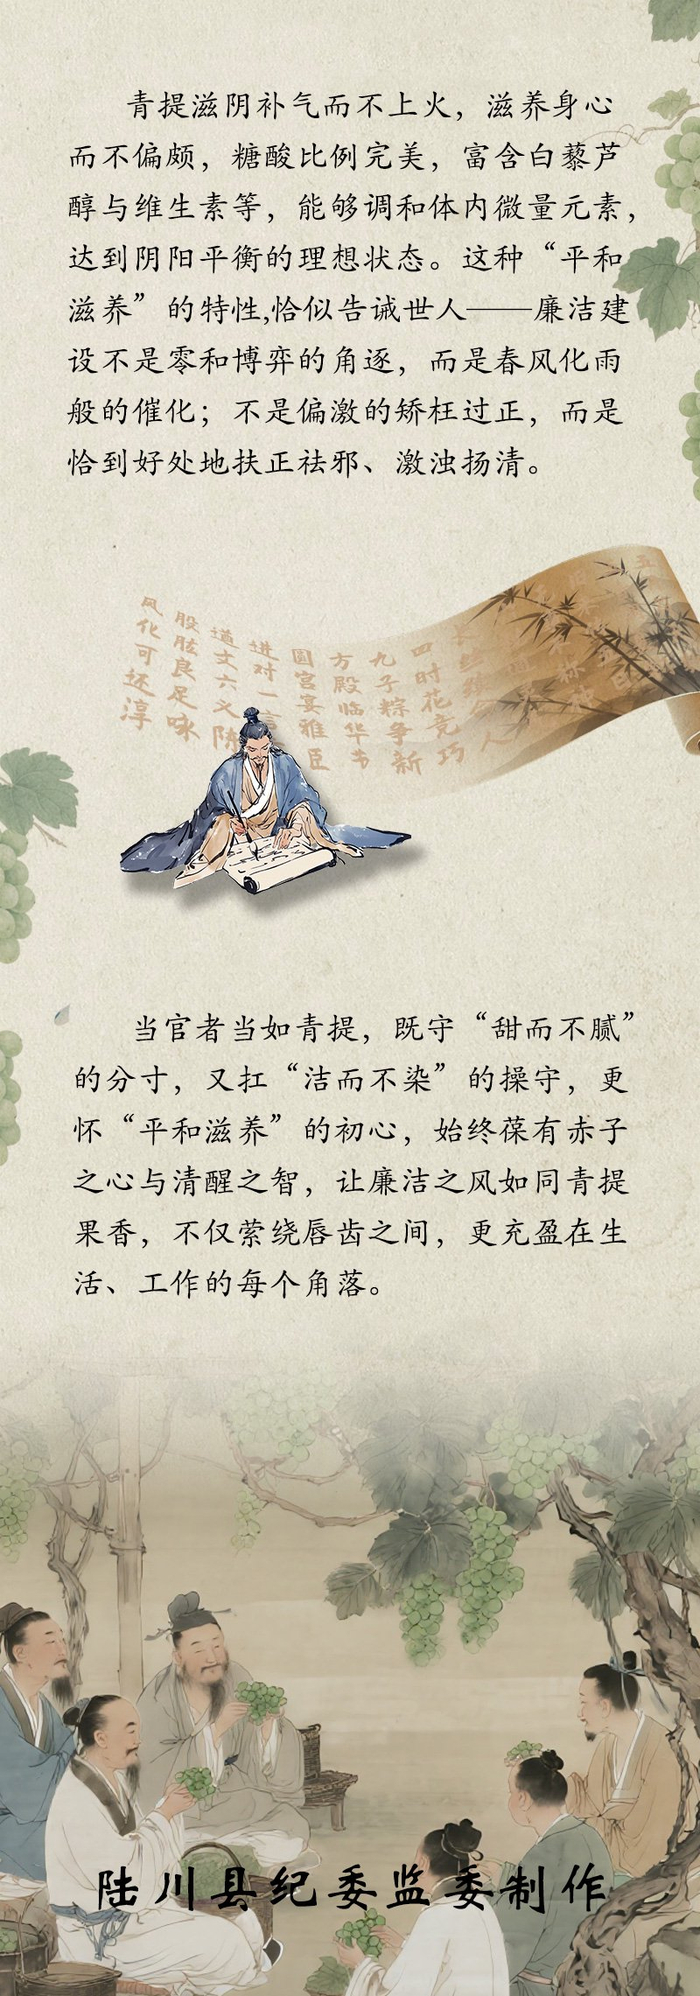 青提滋阴补气而不上火，滋养身心
而不偏颇，糖酸比例完美，富含白藜芦
醇与维生素等，能够调和体内微量元素，
达到阴阳平衡的理想状态。这种“平和
滋养”的特性,恰似告诫世人——廉洁建
设不是零和博弈的角逐，而是春风化雨
般的催化；不是偏激的矫枉过正，而是
恰到好处地扶正祛邪、激浊扬清。
四时花竞巧
九子粽争新
方殿临华节
圆宫宴雅臣
进对一言
道文六义陈
股肱良足咏
风化可还淳
当官者当如青提，既守“甜而不腻”
的分寸，又扛“洁而不染”的操守，更
怀“平和滋养”的初心，始终葆有赤子
之心与清醒之智，让廉洁之风如同青提
果香，不仅萦绕唇齿之间，更充盈在生
活、工作的每个角落。
陆川县纪委监委制作